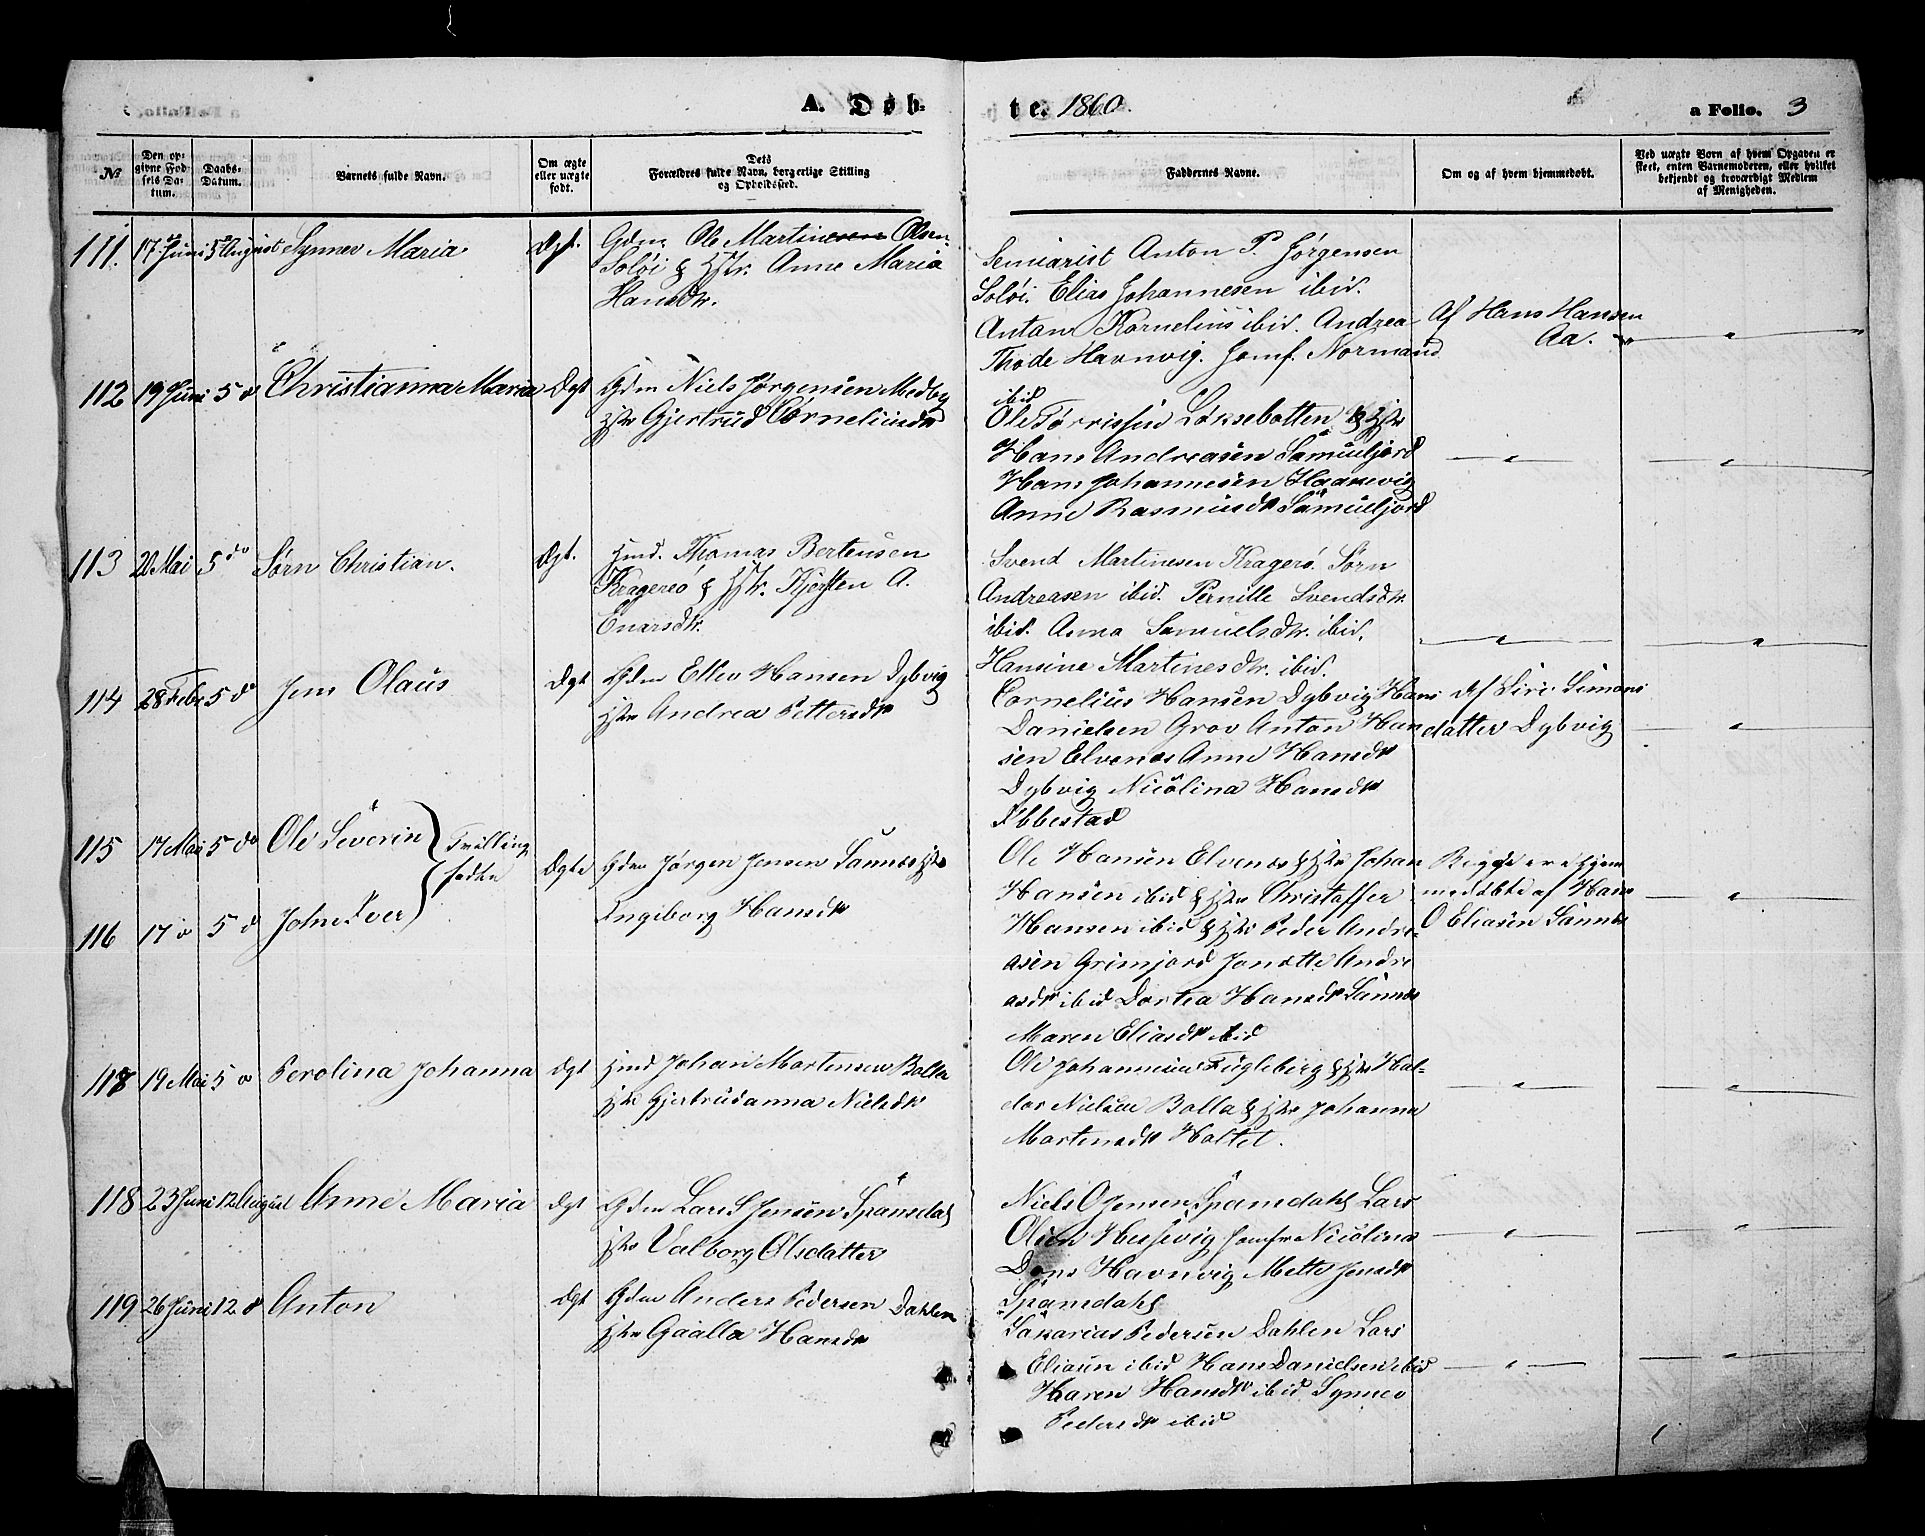 A. Døb-
te. 1860.
a Folio. 3
№
Den op-
givne Fød-
sels Da-
tum.
Daabs-
Datum.
Barnets fulde Navn.
Om ægte
eller uægte
født.
Dets
Forældres fulde Navn, borgerlige Stilling
og Opholdssted.
Faddernes Navne.
Om og af hvem hjemmedøbt.
Ved uægte Børn af hvem Opgaven er
skeet, enten Barnemoderen, eller hvilket
bekjendt og troværdigt Medlem
af Menigheden.
111. 17 Juni 5 August Synnev Maria Ægt. Gdm. Ole Martinesen Olsen
Soløi & Hstr. Anne Maria
Hansdtr.
Seminarist Anton P. Jørgensen
Soløi. Elias Johannesen ibid.
Anton Kornelius ibid. Andrea
Thode Havnvig. Jomf. Normand
ibid
Af Hans Hansen
Aa.
112 19 Juni 5 d Christianna Maria Ægt Gdm Niels Jørgensen Medby
Hstr Gjertrud Corneliusdtr
Ole Tørrissen Løksebotten & Hstr
Hans Andreasen Samueljord
Hans Johannesen Haanevig
Anne Rasmusdtr Samueljord
113 20 Mai 5 do Sørn Christian. Ægt. Hmd. Thomas Bertensen
Kragerø & Hstr. Kjersten A.
Enarsdtr.
Svend Martinesen Kragerø. Sørn
Andreasen ibid. Pernille Svendsdtr.
ibid. Anna Samuelsdtr. ibid.
Hansine Martinesdtr. ibid.
114 28 Febr 5 do Jens Olaus Ægt Gdm Ellev Hansen Dybvig
Hstr Andrea Pettersdtr
Cornelius Hansen Dybvig Hans
Danielsen Grov Anton Han
sen Elvenes Anne Hansdtr
Dybvig Nicolina Hansdtr
Ibbestad
Af Siri Simons
datter Dybvig
115 17 Mai 5 do Ole Severin
Tvilling
fødte
116 17 d 5 d John Iver
Ægte Gdm Jørgen Jensen Sannes Hstr
Ingiborg Hansdtr
Ole Hansen Elvenes & Hstr Johan
Hansen ibid & Hstr Christoffer
Hansen ibid & Hstr Peder Andre-
asen Grimjord Janette Andre
asdtr ibid Dortea Hansdtr Sannes
Maren Eliasdtr ibid
Begge ere hjem
medøbte af Hans
O Eliasen Sannes
117 19 Mai 5 d Perolina Johanna Ægt Hmd Johan Mortensen Bolla
Hstr Gjertrudanna Nielsdtr
Ole Johannesen Fugleberg & Hstr Hal-
dor Nielsen Bolla & Hstr Johanna
Martensdtr Holtet.
118 23 Juni 12 August Anne Maria Ægt Gdm Lars S Jensen Spansdal
Hstr Valborg Olsdatter
Niels O Jensen Spansdahl Lars
Olsen Hessevig Jomfr Nicolina
Dons Havnvig Mette Jensdtr
Spansdahl
119 26 Juni 12 d Anton Ægt Gdm Anders Pedersen Dahlen
Hstr Gaalla Hansdtr
Sakarias Pedersen Dahlen Lars
Eliasen ibid Hans Danielsen ibid
Karen Hansdtr ibid Synnev
Pedersdtr ibid